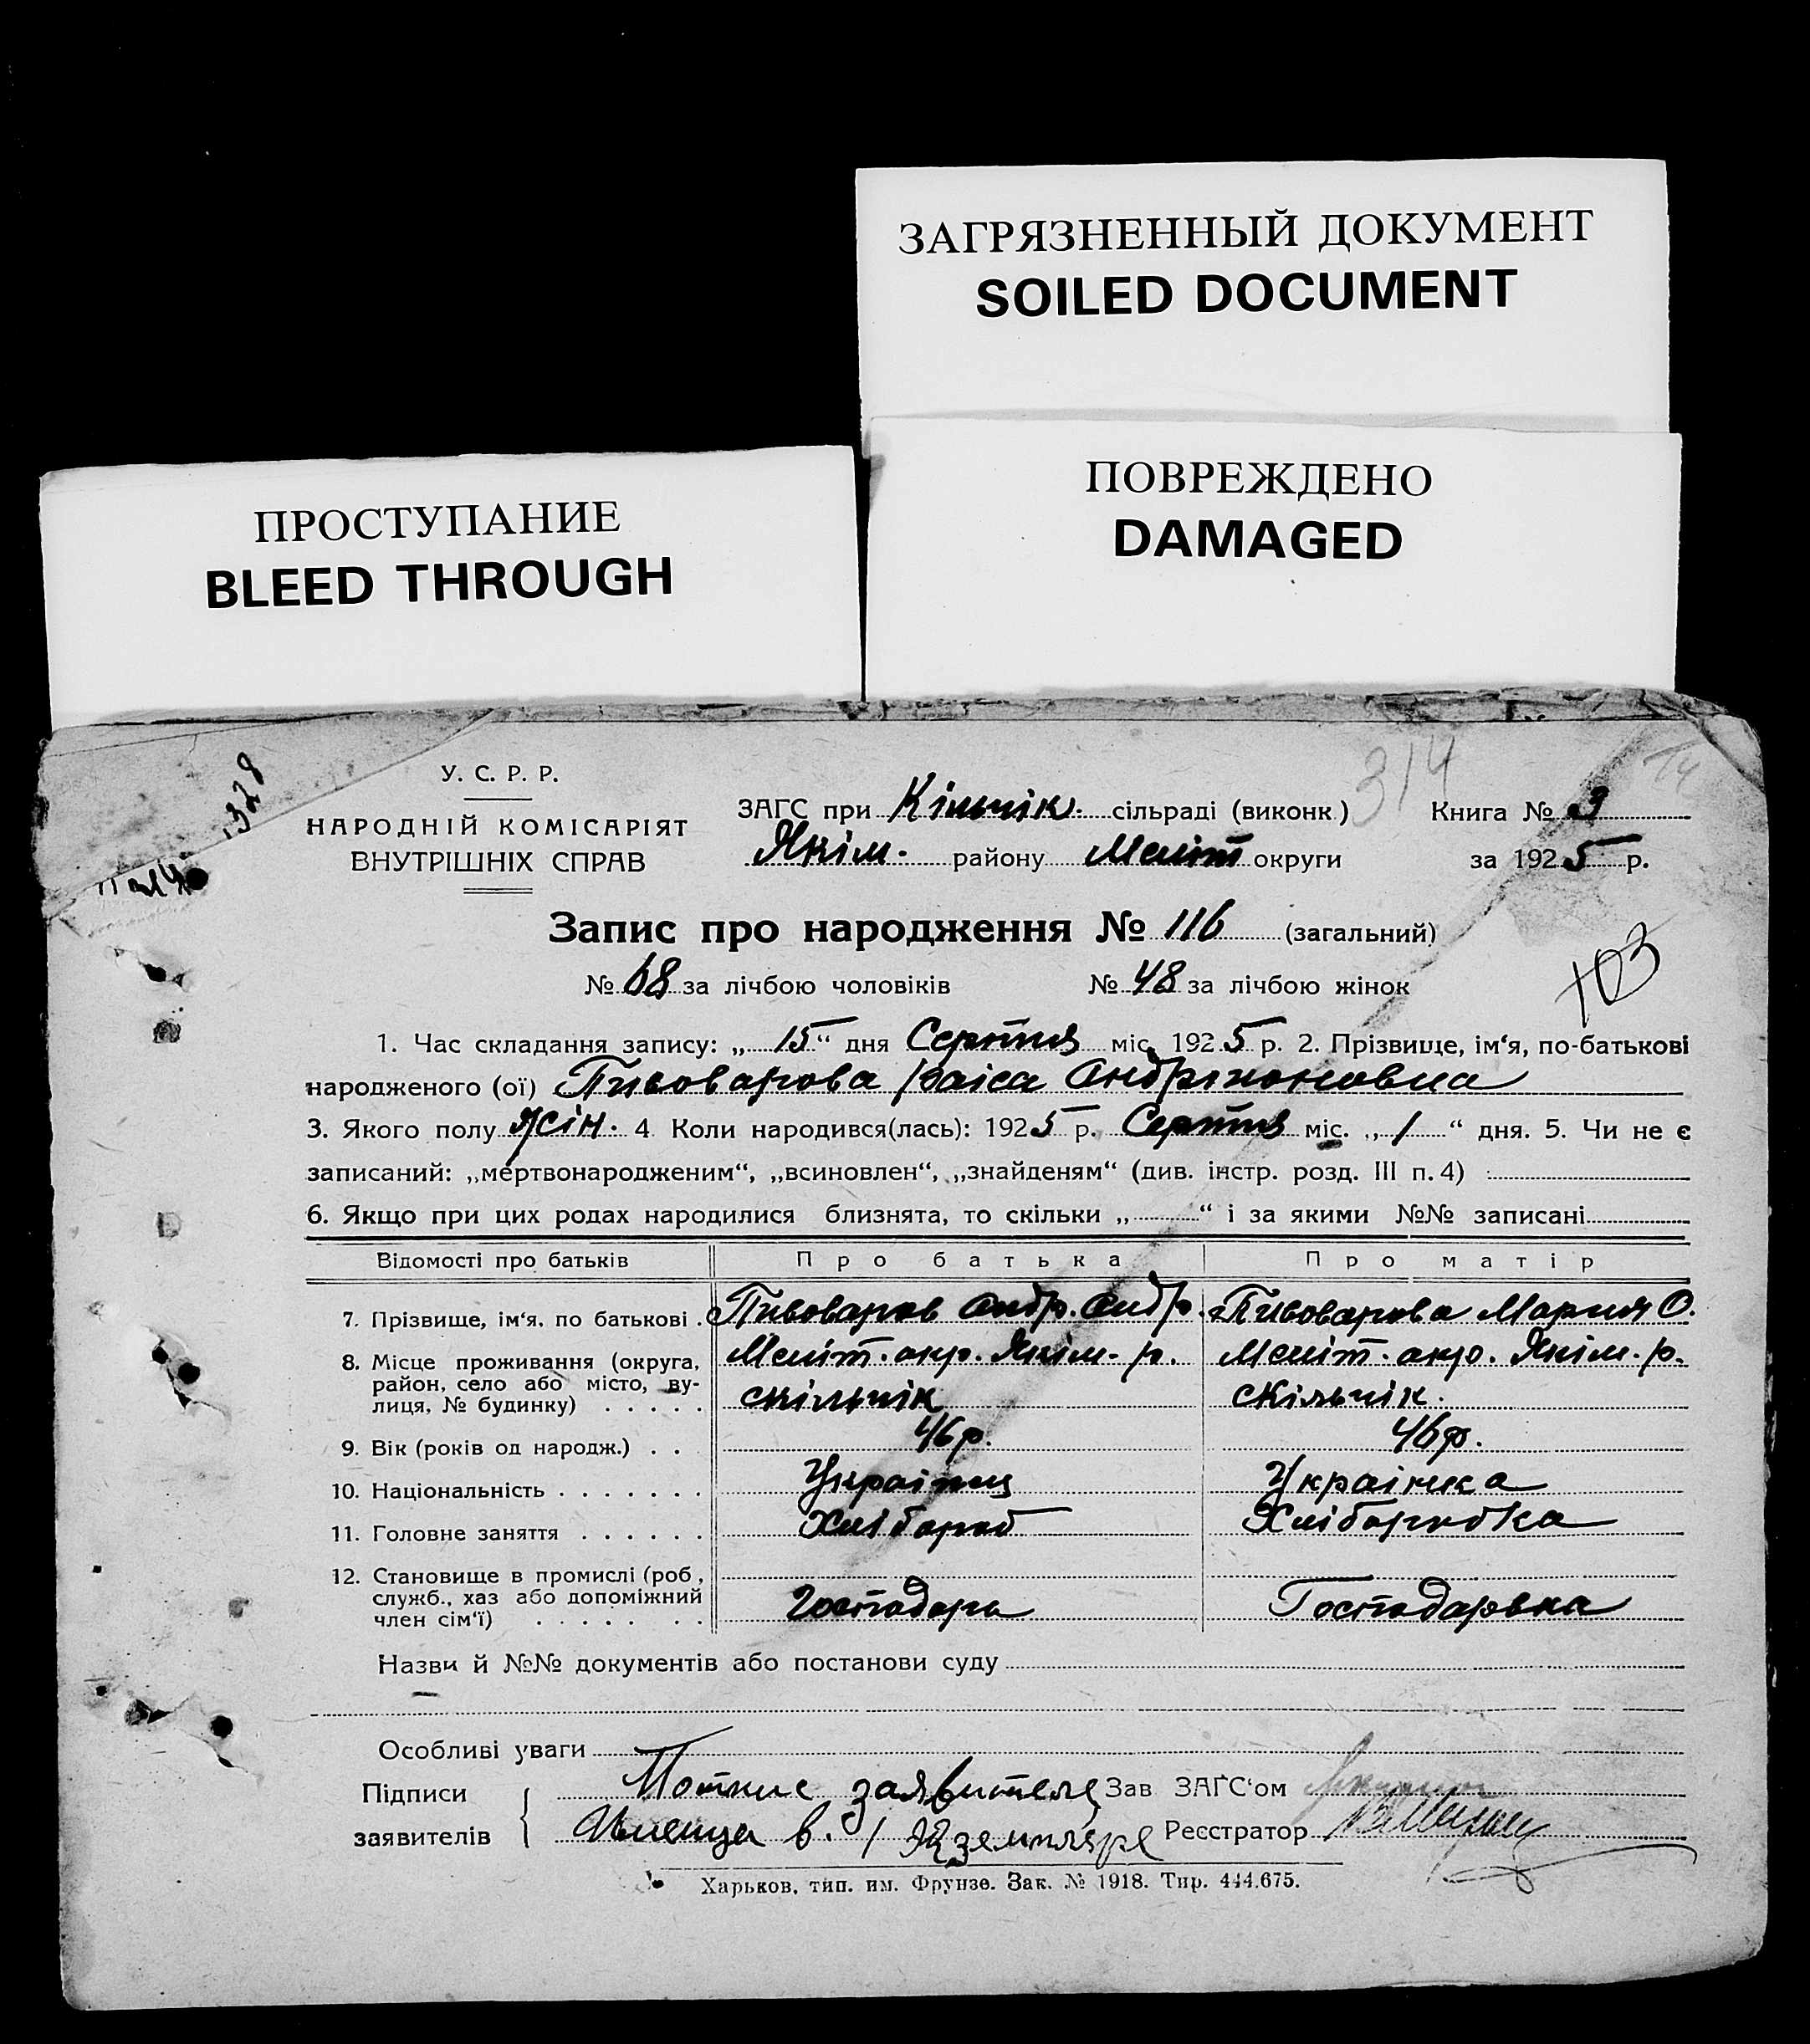 ЗАГРЯЗНЕННЫЙ ДОКУМЕНТ
SOILED DOCUMENT
ПРОСТУПАНИЕ
BLEED THROUGH
ПОВРЕЖДЕНО
DAMAGED
328
314
У. С. Р. Р.
НАРОДНІЙ КОМІСАРІЯТ
ВНУТРІШНІХ СПРАВ
ЗАГС при Кільчік. сільраді (виконк) Книга № 3
Якім. району Меліт округи за 1925 р.
Запис про народження № 116 (загальний)
103
№ 68 за лічбою чоловіків № 48 за лічбою жінок
1. Час складання запису: „15“ дня Серпня міс. 1925 р. 2. Прізвище, ім‘я, по-батькові
народженого (ої) Пивоварова Раіса Андріяновна
3. Якого полу жін. 4 Коли народився(лась): 1925 р. Серпня міс. „1“ дня. 5. Чи не є
записаний: „мертвонародженим“, „всиновлен“, „знайденям“ (див. інстр. розд. III п. 4)
6. Якщо при цих родах народилися близнята, то скільки „ “ і за якими №№ записані
Відомості про батьків Про батька Про матір
7. Прізвище, ім‘я, по батькові . Пивоваров Андр. Андр. Пивоварова Мария О.
8. Місце проживання (округа, Меліт. окр. Якім. р. Меліт. окр. Якім. р.
район, село або місто, ву-
лиця, № будинку) . . . . . скільчік скільчік.
9. Вік (років од народж.) . . 46 р. 46 р.
10. Національність . . . . . . . Українц Українка
11. Головне заняття . . . . . . Хлібороб Хліборобка
12. Становище в промислі (роб,
служб., хаз або допоміжний
член сім‘ї) . . . . . . . Господарь Господарка
Назви й №№ документів або постанови суду
Особливі уваги
Підписи заявителя Зав ЗАГС‘ом
заявителів в. 1 Экземпляре Реєстратор
Харьков, тип. им. Фрунзе. Зак. № 1918. Тир. 444.675.